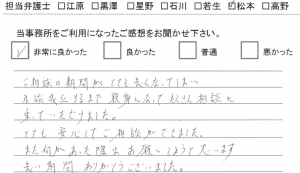 担当弁護士 □江原 □黒澤 □星野 □石川 □若生 ☑松本 □高野
当事務所をご利用になったご感想をお聞かせ下さい。
☑ 非常に良かった □ 良かった □ 普通 □ 悪かった
ご相談の期間がとても長くなってしまい
親身になって 相談に
乗っていただけました。
とても安心してご相談ができました。
また何かあった際はお願いしようと思います
長い期間ありがとうございました。